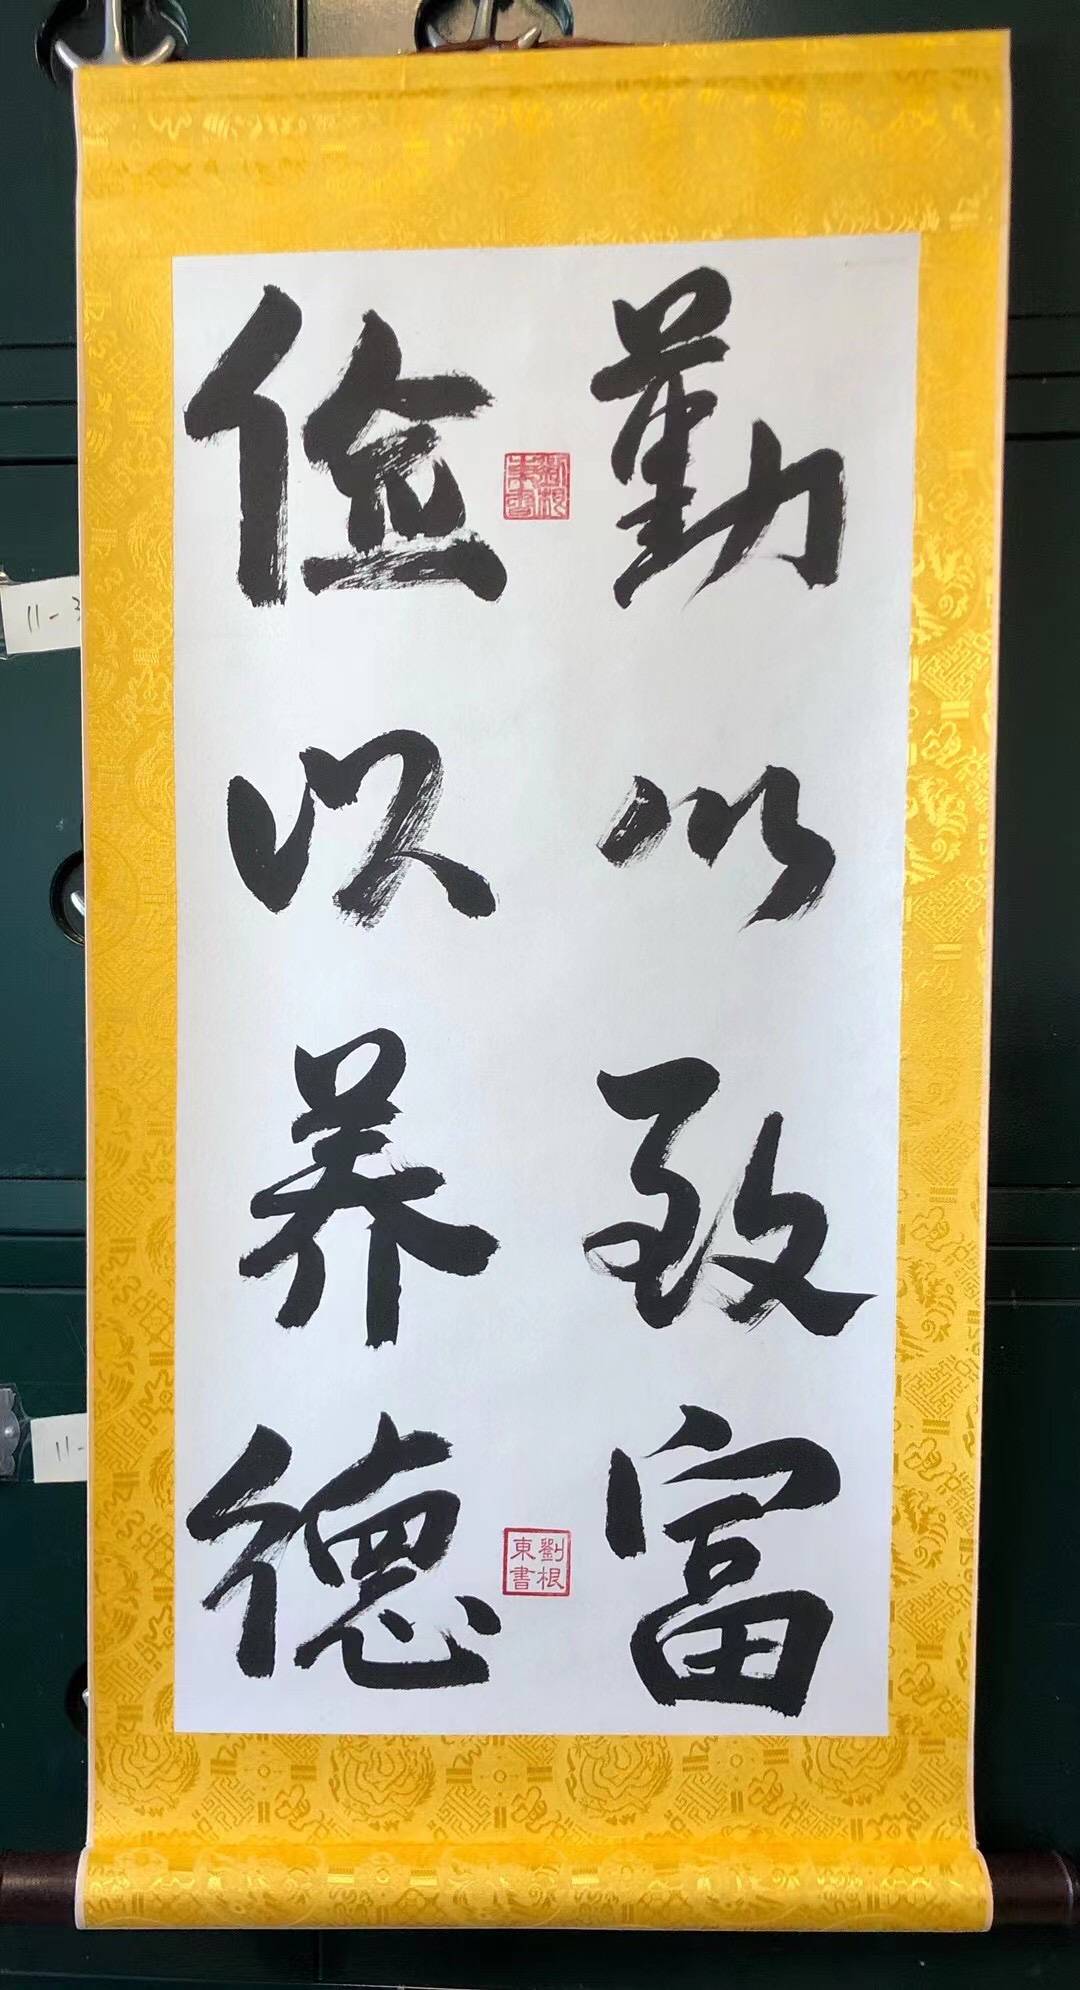 勤以致富
俭以养德
劉根
東書
劉根
東書
11-3
11-